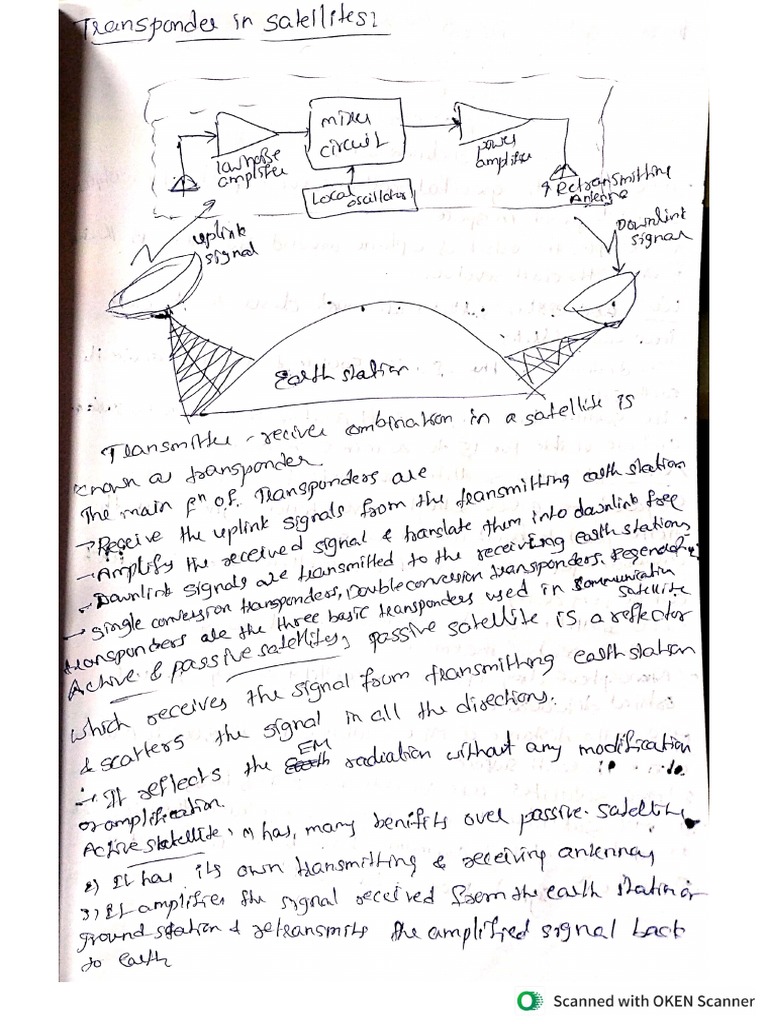 Transponder in satellites:
low noise
amplifier
mixer
circuit
Local
oscillator
power
amplifier
Retransmitting
Antenna
uplink
signal
Downlink
signal
Earth station
Transmitter - reciver combination in a satellite is
known as transponder.
The main fn of Transponders are
→ Receive the uplink signals from the transmitting earth station
→ Amplify the received signal & translate them into downlink freq
→ Downlink signals are transmitted to the receiving earth stations
→ single conversion transponders, Double conversion transponders, Regenerative
transponders are the three basic transponders used in communication
satellite
Active & passive satellites; passive satellite is a reflector
which receives the signal from transmitting earth station
& scatters the signal in all the directions.
→ It reflects the EM radiation without any modification
or amplification.
Active satellite: it has, many benifits over passive satellite
2) It has its own transmitting & receiving antennas
3) It amplifies the signal received from the earth station or
ground station & retransmits the amplified signal back
to earth
Scanned with OKEN Scanner